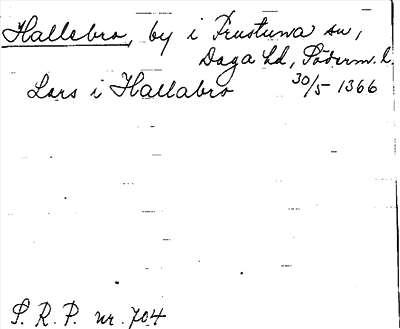 Hallebro, by i Frustuna sn,
Daga hd, Söderm. l.
Lars i Hallabro 30/5 1366
S. R. P. nr. 704